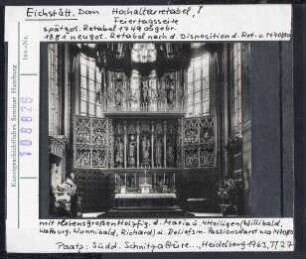 Eichstätt. Dom Hochaltarretabel,
Feiertagsseite
spätgot. Retabel 1749 abgebr.
1881 neugot. Retabel nach d. Disposition d. Ret. v.
Kunstgeschichtliches Seminar Hamburg
Inv.-Nr.
108825
mit lebensgroßen Holzfig. d. Maria u. 4 Heiligen (Willibald,
Walburg, Wunnibald, Richard) u. Reliefs m. Passionsdarst.
Paatz: Südd. Schnitzaltäre.., Heidelberg 1963, T/27